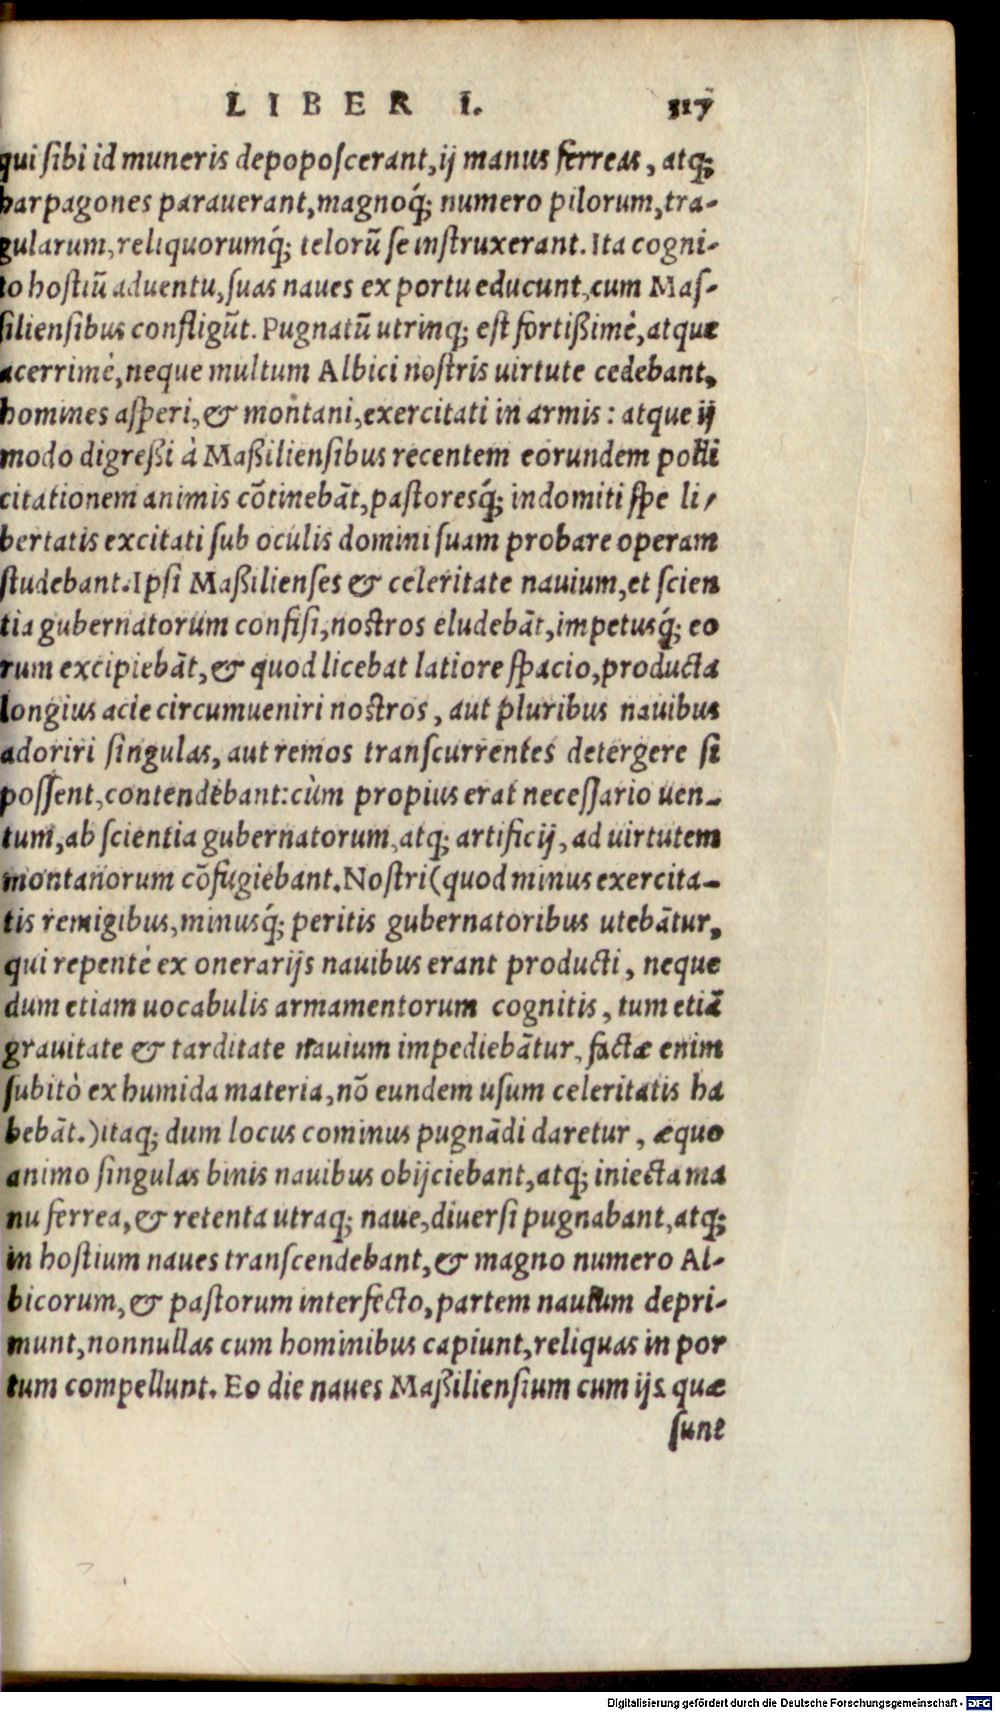 LIBER I. 317
qui sibi id muneris depoposcerant, ij manus ferreas, atq;
harpagones parauerant, magnoq́; numero pilorum, tra-
gularum, reliquorumq́; telorũ se instruxerant. Ita cogni-
to hostiũ aduentu, suas naues ex portu educunt, cum Mas-
siliensibus confligũt. Pugnatũ utrinq; est fortißimè, atquæ
acerrimè, neque multum Albici nostris uirtute cedebant,
homines asperi, & montani, exercitati in armis: atque ij
modo digreßi à Maßiliensibus recentem eorundem polli
citationem animis cõtinebãt, pastoresq́; indomiti spe li-
bertatis excitati sub oculis domini suam probare operam
studebant. Ipsi Maßilienses & celeritate nauium, et scien
tia gubernatorum confisi, nostros eludebãt, impetusq́; eo
rum excipiebãt, & quod licebat latiore spacio, producta
longius acie circumueniri nostros, aut pluribus nauibus
adoriri singulas, aut remos transcurrentes detergere si
possent, contendebant: cùm propius erat necessario uen-
tum, ab scientia gubernatorum, atq; artificij, ad uirtutem
montanorum cõfugiebant. Nostri (quod minus exercita-
tis remigibus, minusq́; peritis gubernatoribus utebãtur,
qui repentè ex onerarijs nauibus erant producti, neque
dum etiam uocabulis armamentorum cognitis, tum etiã
grauitate & tarditate nauium impediebãtur, factæ enim
subitò ex humida materia, nõ eundem usum celeritatis ha
bebãt.) itaq; dum locus cominus pugnãdi daretur, æquo
animo singulas binis nauibus obijciebant, atq; iniecta ma
nu ferrea, & retenta utraq; naue, diuersi pugnabant, atq;
in hostium naues transcendebant, & magno numero Al-
bicorum, & pastorum interfecto, partem nauium depri-
munt, nonnullas cum hominibus capiunt, reliquas in por
tum compellunt. Eo die naues Maßiliensium cum ijs quæ
sunt
Digitalisierung gefördert durch die Deutsche Forschungsgemeinschaft - DFG